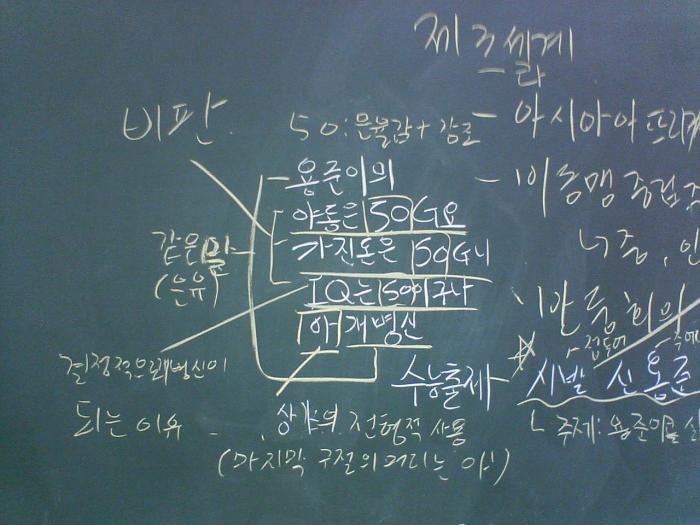 제 3세계
라
비판
50:문물감+강조
- 아시아아프리카
용준이의
- 비동맹 중립
야동은 50G요
가진돈은 50G니
같은말
(은유)
IQ는 50이구나
아 개병신
반둥회의
결정적으로 개병신이
되는 이유
수능출제
접두어
시발 신용준
상가의 전형적 사용
(마지막 구절의 머리는 아!)
ㄴ 주제: 용준이를